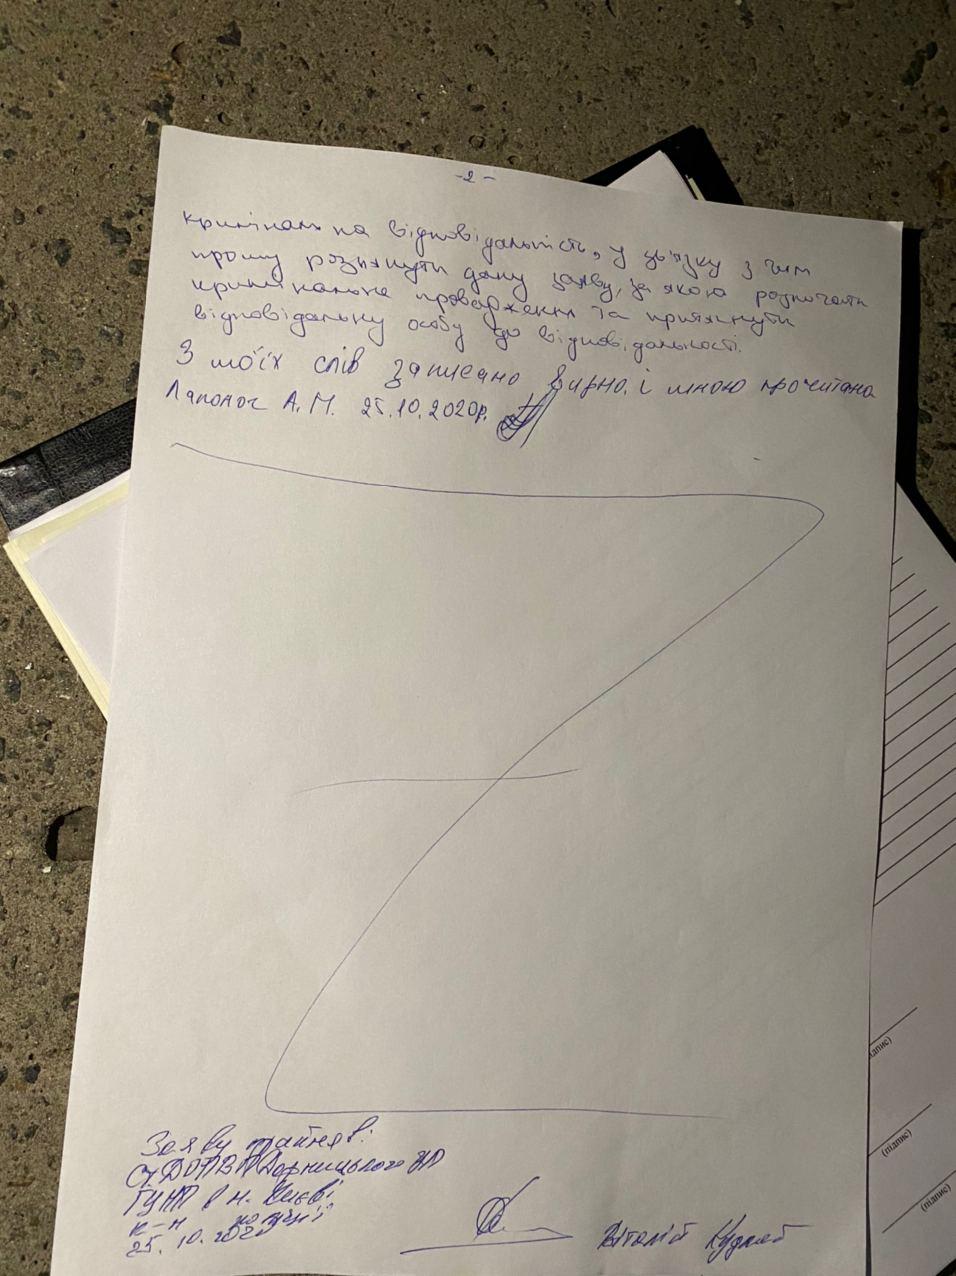 -2-
кримінальна відповідальність, у зв'язку з чим
прошу розглянути дану заяву, за якою розпочати
кримінальне провадження та притягнути
відповідальну особу до відповідальності.
З моїх слів записано вірно і мною прочитана
Лапоног А.М. 25.10.2020р.
Заяву прийняв:
Ст. ДОП ВП Дарницького УП
ГУНП в м. Києві
к-н поліції
25.10.2020
Віталій
(підпис)
(підпис)
(підпис)